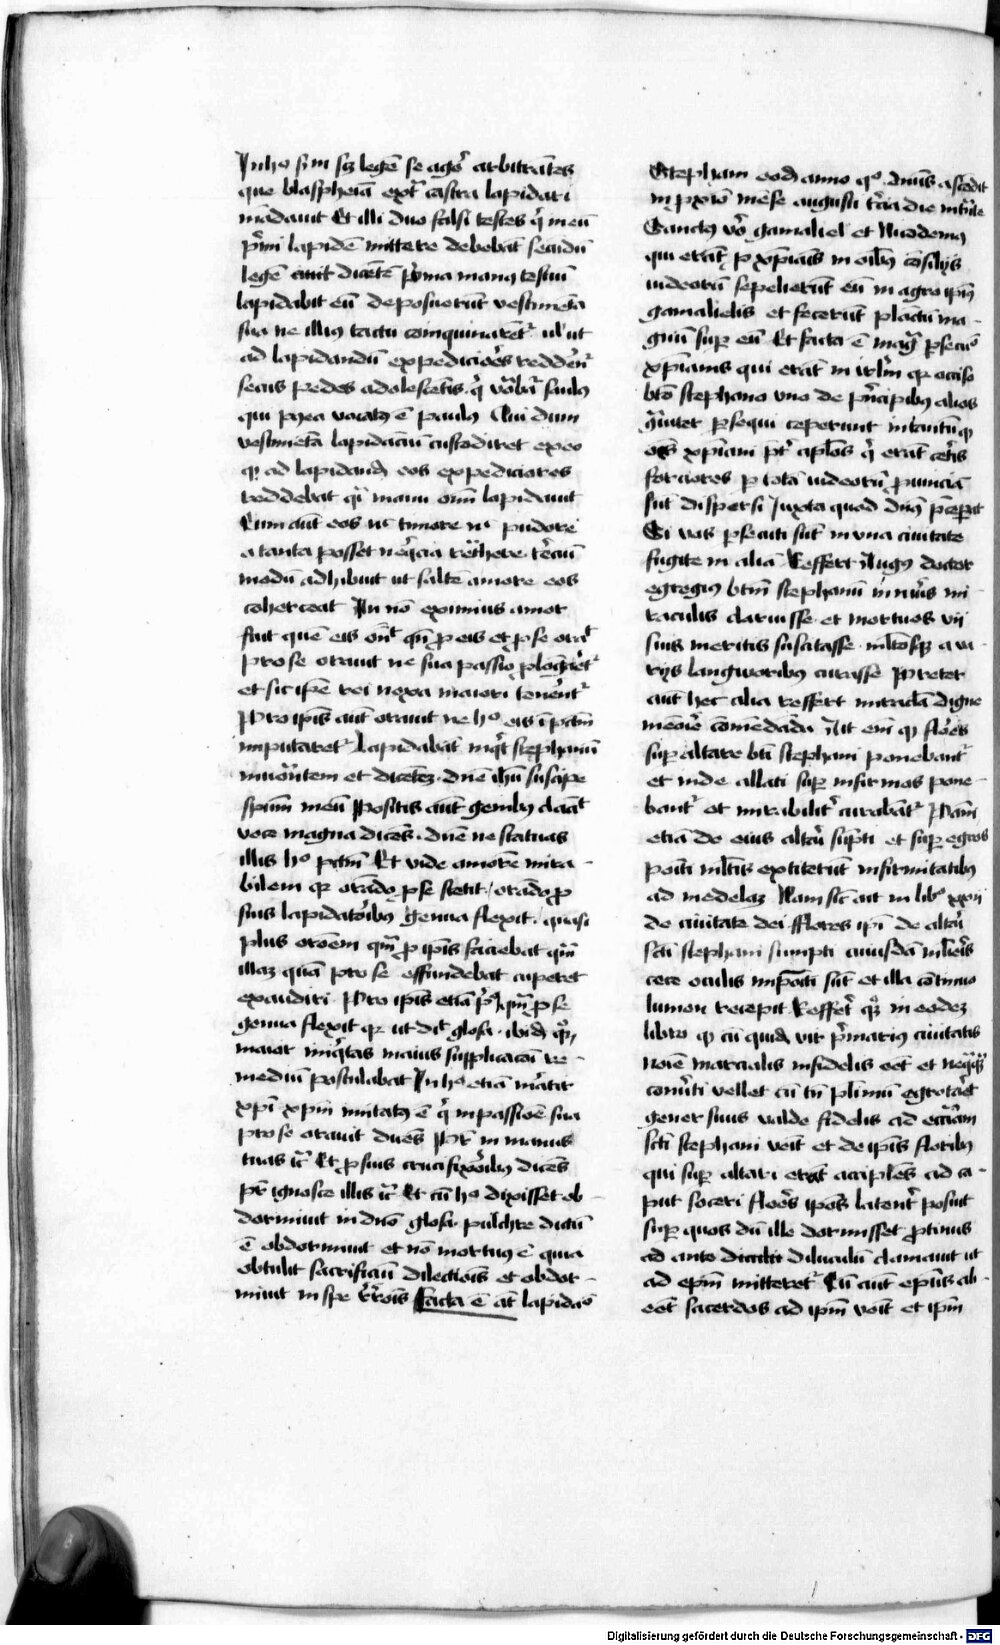 In hoc enim scz legē se agē arbitrātes
que blasphemā extra castra lapidari
mādauit Et illi duo falsi testes q̄ in eū
p̄mi lapidē mittere debebāt secūdū
legē aiūt dicētē p̄ma manꝯ testiū
lapidabit eū deposuerūt vestimēta
sua ne illiꝯ tactu coinquinarēt᷑ ul' ut
ad lapidandū expediciōes reddēnt᷑
secus pedes adolescētis q̄ vocabat᷑ saulꝯ
qui postea vocatꝯ ē paulꝯ Qui dum
vestimēta lapidāciū custodiret ex eo
qꝫ ad lapidandū eos expediciores
reddebat q̄i manu oīm lapidauit
Cum aūt eos nec timore nec pudore
a tanta posset neq̄cia retrahere terciū
modū adhibuit ut saltē amore eos
coherceat An nō eximius amor
fuit quē eis oñdit qn̄ pro eis et pro se orat
pro se orauit ne sua passio plongaret᷑
et sic ipē rei noxa maiori tenerent᷑
Pro ipīs aūt orauit ne hoc eis ī pctm̄
imputaret᷑ Lapidabāt inqt stephanū
inuocāntem et dicētē dn̄e ihū suscipe
spm̄ meū Positis aūt genibꝯ clāat
voce magna dicēs dn̄e ne statuas
illis hoc pctm̄ Et vide amorē mira-
bilem qꝫ orādo pro se stetit orādo pro
suis lapidatoribꝯ genua flexit quasi
plus orōem qm̄ pro ipīs faciebat qm̄
illaz quā pro se effundebat cuperet
exaudiri Pro ipīs etiā p̄us qm̄ pro se
genua flexit qꝫ ut dit glosa ibidē qꝫ
maior iniq̄tas maius supplicacōi re-
mediū postulabat In hoc etiā mātir
xpī xpm̄ imitatꝯ ē q̄ in passiōe sua
pro se orauit dicēs Pr̄ in manus
tuas ꝛc Et pro suis crucifixoribꝯ dicēs
pr̄ ignosce illis ꝛc Et cū hoc dixisset ob-
dormiuit in dn̄o glosa pulchre dictū
ē obdormiuit et nō mortuꝯ ē quia
obtulit sacrificiū dilectiōis et obdor-
miuit in spe resurrectiōis Facta ē aūt lapidaō
Stephani eodē anno quo dn̄us ascēdit
in proxīo mēse augusti tercia die intrāte
Sanctꝯ vō gamaliel et Nicodemꝯ
qui erāt pro xpīanis in oībꝯ cōsilijs
iudeorū sepelierūt eū in agro ipīꝯ
gamalielis et fecerūt plāctū ma-
gnū super eū Et facta ē magna psecuō
xpīanis qui erāt in irlm̄ qꝫ occiso
btō stephano vno de p̄ncipibꝯ alios
grauiter psequi ceperunt intantū qꝫ
oēs xpīani pter apl̄os q̄ erāt ceteris
forciores per totā iudeorū prouinciā
sūt dispersi Iuxta quod dn̄s preceperat
Si vos psecuti sūt in vna ciuitate
fugite in aliā Reffert Augꝯ doctor
egregiꝯ btm̄ stephanū innumeris mi-
raculis claruisse et mortuos vij
suis meritis suscitasse multosqꝫ a va-
rijs langworibꝯ curasse Preter
aūt hec alia reffert miracla digne
memōie cōmendāda Ait eni qꝫ flores
super altare bti stephani ponebant᷑
et inde allati super infirmos pone-
bant᷑ et mirabiliter curabāt᷑ Pāni
etiā de eius altari sūpti et super egros
positi multis extiterūt infirmitatibꝯ
ad medelaz Nam sic ait in libo xxij
de ciuitate dei Flores ipī de altari
scti stephani sumpti cuiusdā mulieris
cece oculis impositi sūt et illa cōtinuo
lumen recepit Reffert quoqꝫ in eodez
libro qꝫ cū quidā vir p̄mariꝯ ciuitatis
noīe marcialis infidelis eēt et nequaqꝫ
conuerti vellet cū tn̄ plurimū egrotaret
gener suus valde fidelis ad ecclesiam
scti stephani venit et de ipīs floribꝯ
qui super altari erāt accipiēs ad ca-
put soceri flores ipos latenter posuit
super quos dū ille dormisset protinus
ad ante diluculū clamauit ut
ad epm̄ mitteret᷑ Cū aūt epūs ab-
eēt sacerdos ad ipm̄ venit et ipm̄
Digitalisierung gefördert durch die Deutsche Forschungsgemeinschaft - DFG